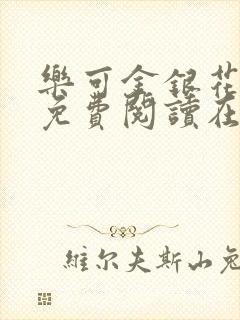 樂可金銀花
免費閱讀在
維尔夫斯山兔